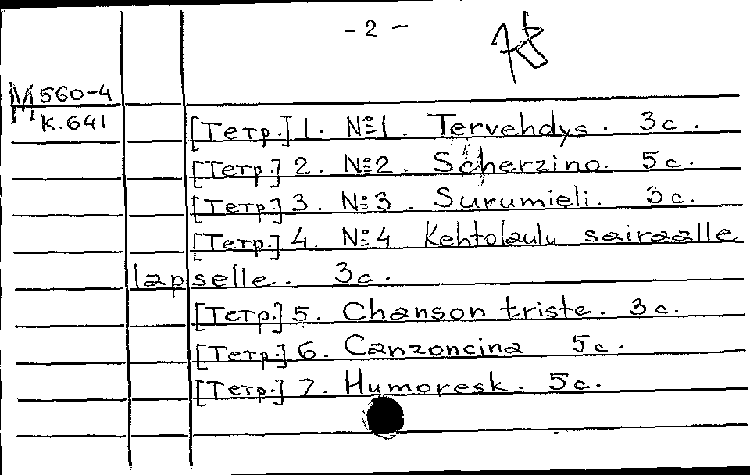 - 2 -
M 560-4
к.641
[Тетр.] 1. №1. Tervehdys. 3с.
[Тетр.] 2. №2. Scherzino. 5с.
[Тетр.] 3. №3. Surumieli. 3с.
[Тетр.] 4. №4 Kehtolaulu sairaalle
lapselle. 3с.
[Тетр.] 5. Chanson triste. 3с.
[Тетр.] 6. Canzoncina 5с.
[Тетр.] 7. Humoresk. 5с.